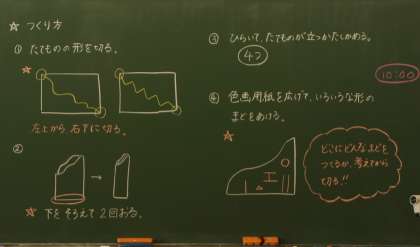 ☆ つくり方
① たてものの形を切る。
☆
左上から 右下に切る。
②
→
☆ 下をそろえて2回おる。
③ ひらいて、たてものが立つかたしかめる。
4つ
④ 色画用紙を広げて、いろいろな形の
まどをあける。
☆
どこにどんなまどを
つくるか、考えてから
切る!!
10:00